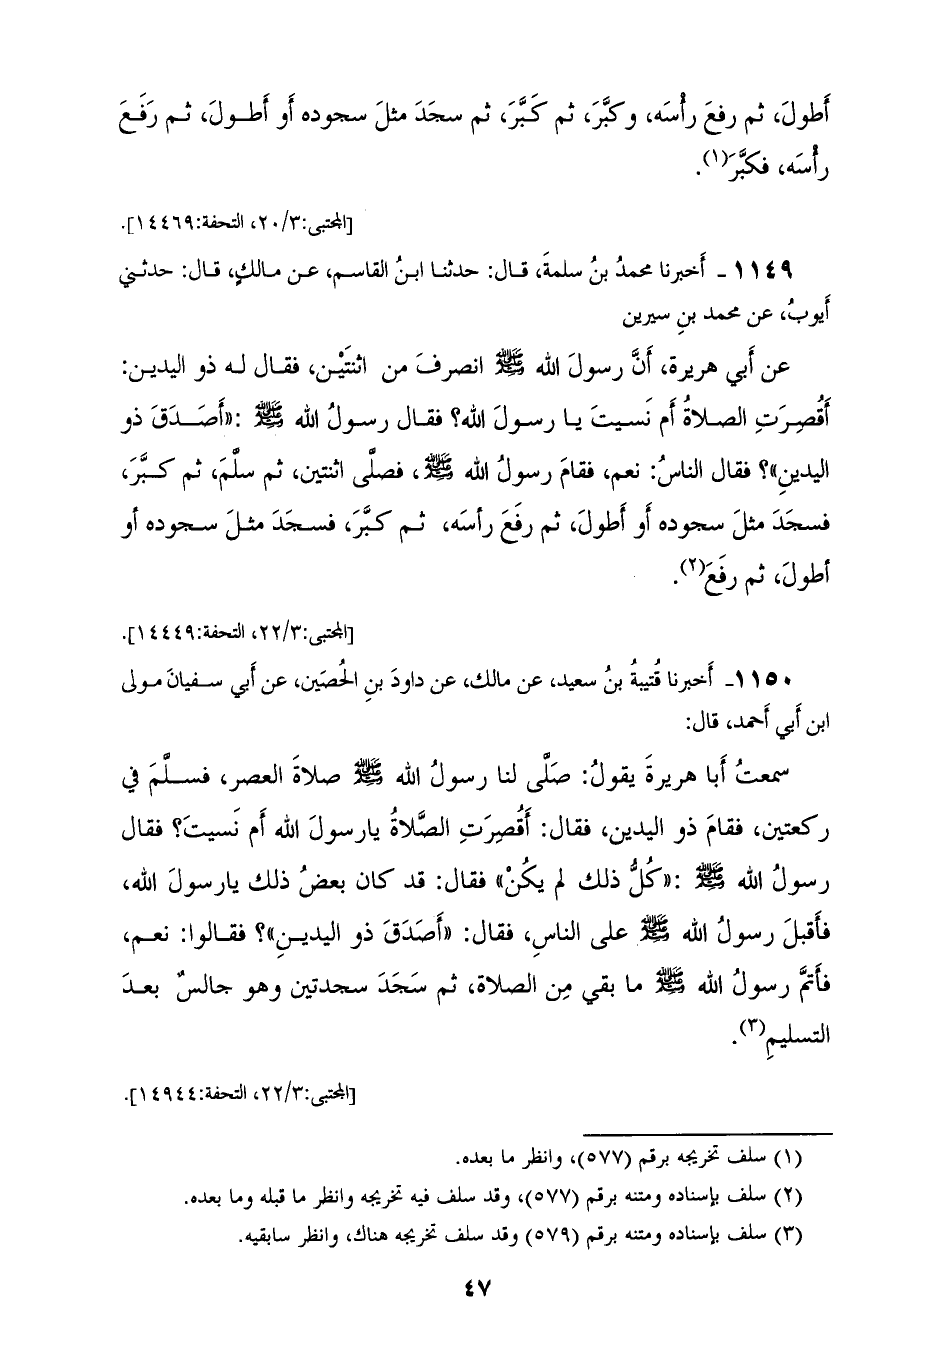 أَطولَ، ثم رفعَ رأْسَه، وكبَّرَ، ثم كَبَّرَ، ثم سجَدَ مثلَ سجوده أَو أَطولَ، ثم رَفَعَ
رأْسَه، فكبَّرَ(١).
[المجتبى:٢٠/٣، التحفة:١٤٤٦٩].
١١٤٩ - أَخبرنا محمدُ بنُ سلمةَ، قال: حدثنا ابنُ القاسم، عن مالكٍ، قال: حدثني
أَيوبُ، عن محمد بنِ سيرين
عن أَبي هريرة، أَنَّ رسولَ الله ﷺ انصرفَ من اثنتَيْن، فقال له ذو اليدين:
أَقُصِرَتِ الصلاةُ أم نَسيتَ يا رسولَ الله؟ فقال رسولُ الله ﷺ :«أَصَدَقَ ذو
اليدينِ»؟ فقال الناسُ: نعم، فقامَ رسولُ الله ﷺ، فصلَّى اثنتين، ثم سلَّمَ، ثم كبَّرَ،
فسجَدَ مثلَ سجوده أَو أَطولَ، ثم رفَعَ رأسَه، ثم كبَّرَ، فسجَدَ مثلَ سجوده أو
أطولَ، ثم رفَعَ(٢).
[المجتبى:٢٢/٣، التحفة:١٤٤٤٩].
١١٥٠- أَخبرنا قُتيبةُ بنُ سعيد، عن مالك، عن داودَ بنِ الحُصَين، عن أَبي سفيانَ مولى
ابن أَبي أَحمد، قال:
سمعتُ أَبا هريرةَ يقولُ: صَلَّى لنا رسولُ الله ﷺ صلاةَ العصر، فسلَّمَ في
ركعتين، فقامَ ذو اليدين، فقال: أَقُصِرَتِ الصَّلاةُ يارسولَ الله أَم نَسيتَ؟ فقال
رسولُ الله ﷺ :«كُلُّ ذلك لم يكُنْ» فقال: قد كان بعضُ ذلك يارسولَ الله،
فأَقبلَ رسولُ الله ﷺ على الناسِ، فقال: «أَصَدَقَ ذو اليدينِ»؟ فقالوا: نعم،
فأَتمَّ رسولُ الله ﷺ ما بقي مِن الصلاة، ثم سَجَدَ سجدتين وهو جالسٌ بعدَ
التسليمِ(٣).
[المجتبى:٢٢/٣، التحفة:١٤٩٤٤].
(١) سلف تخريجه برقم (٥٧٧)، وانظر ما بعده.
(٢) سلف بإسناده ومتنه برقم (٥٧٧)، وقد سلف فيه تخريجه وانظر ما قبله وما بعده.
(٣) سلف بإسناده ومتنه برقم (٥٧٩) وقد سلف تخريجه هناك، وانظر سابقيه.
٤٧